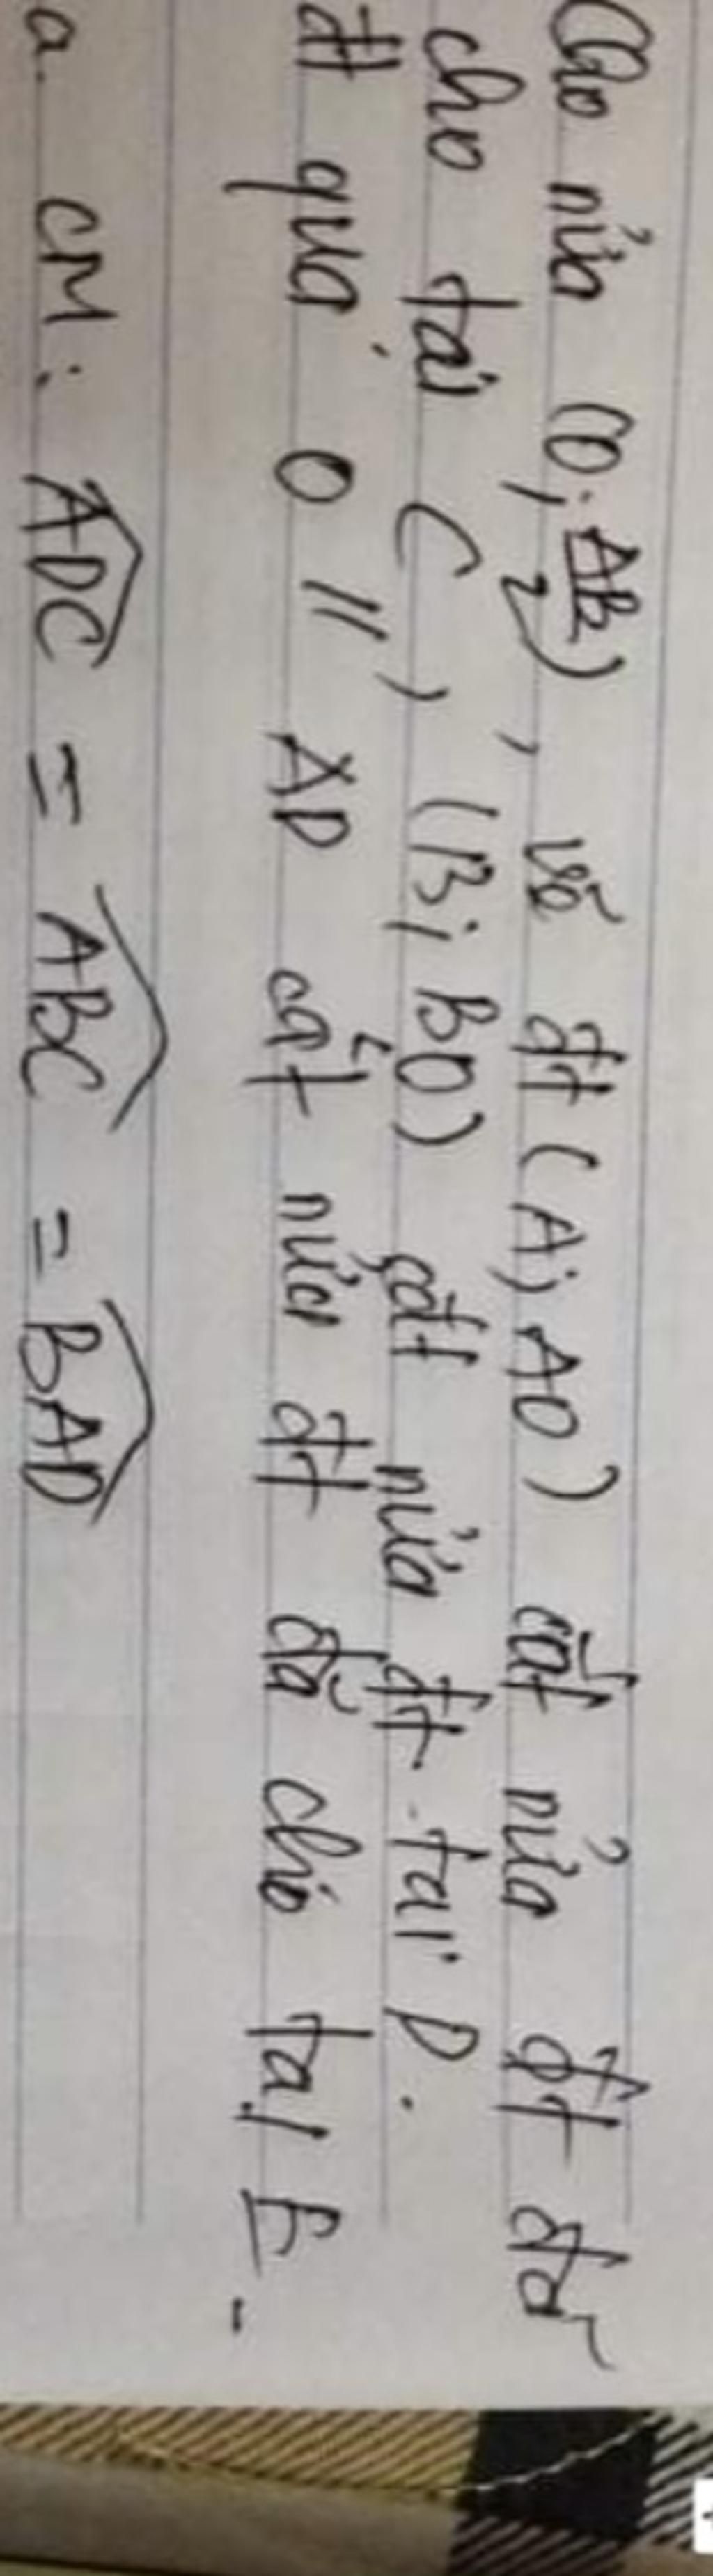 Cho nửa (O; AB/2), vẽ đt (A; AO) cắt nửa đt đã
cho tại C, (B; BO) cắt nửa đt tại D.
đt qua O // AD cắt nửa đt đã cho tại E.
a. CM: ADC = ABC = BAD